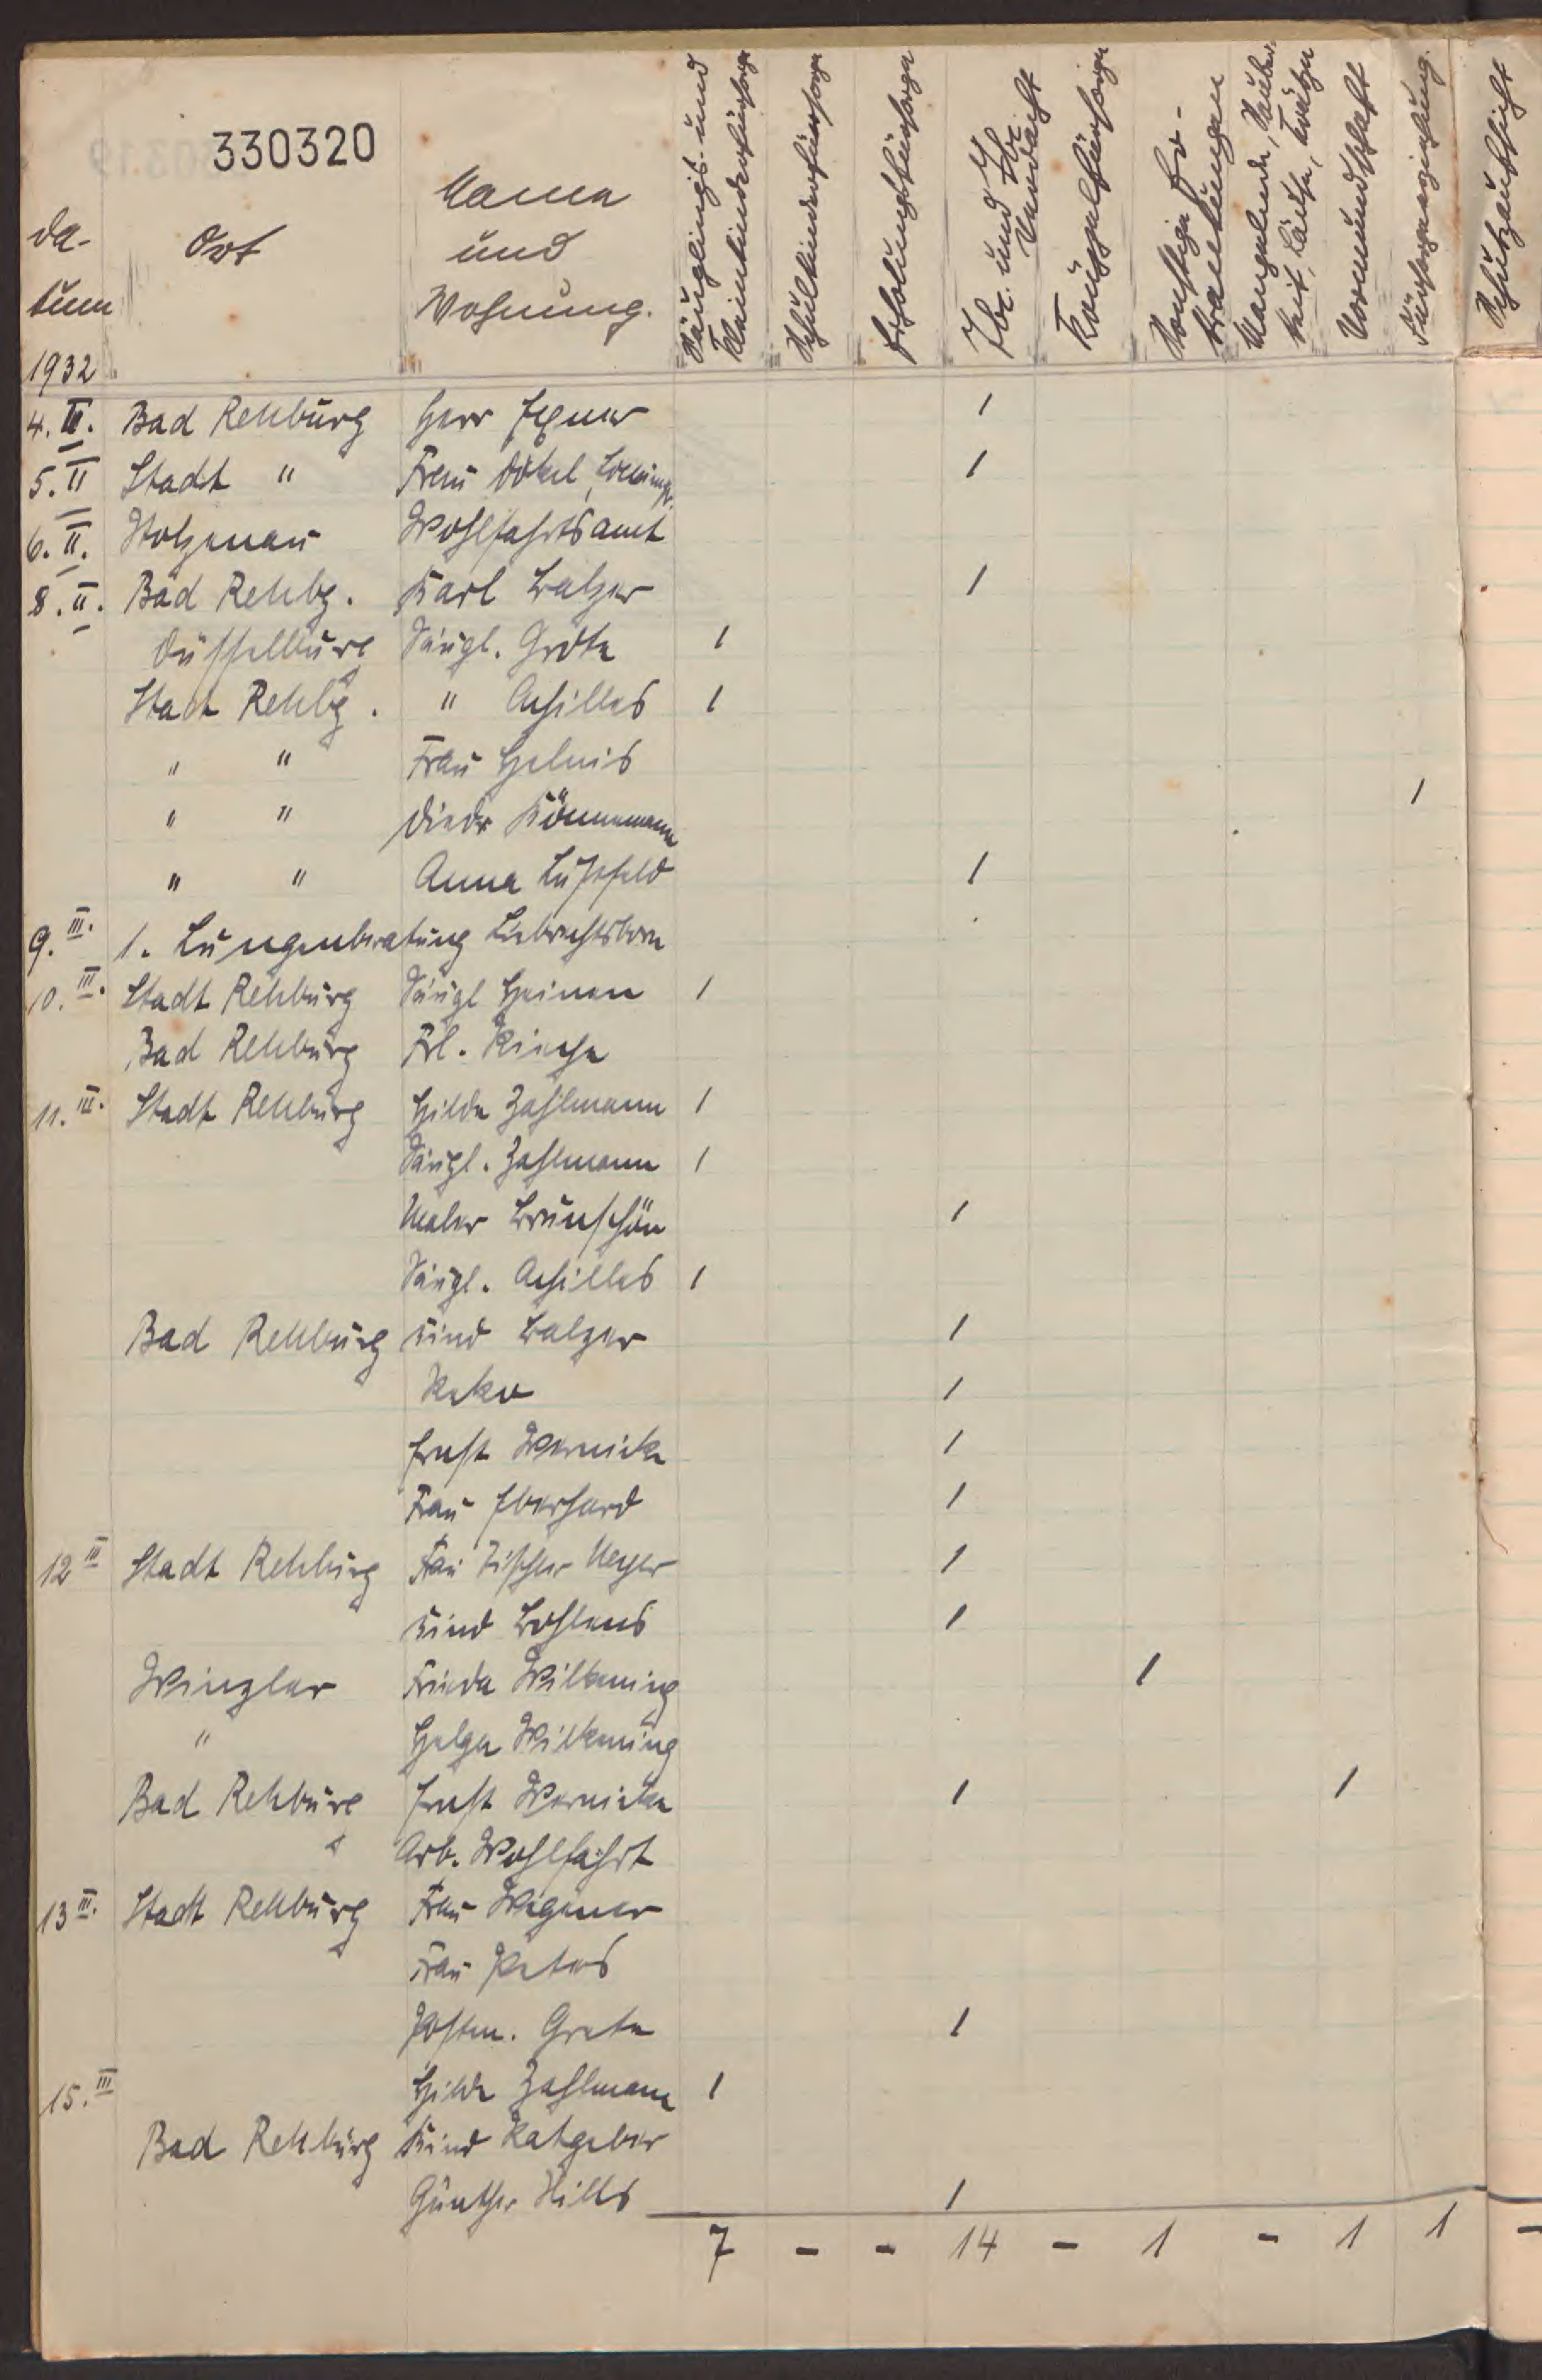 330320
Da-
tum
Ort
Name
und
Wohnung.
Säuglings- und
Kleinkinderfürsorge
Schulkinderfürsorge
Erholungsfürsorge
Tbc. und Tbc.
Verdacht
Krüppelfürsorge
Sonstige Er-
krankungen
Mangelnde Sauber-
keit, Läuse, Krätze
Vormundschaft
Fürsorgeerziehung.
Schutzaufsicht
1932
4. III. Bad Rehburg Herr 1
5. II Stadt " Frau Dökel, 1
6. II. Stolzenau Wohlfahrtsamt
8. II. Bad Rehbg. Karl Balzer 1
Düsselburg Säugl. Gröte 1
Stadt Rehbg. " Achilles 1
" " Frau
" " Diedr Könnemann 1
" " Anna Lustfeld 1
9. III. 1. Lungenberatung
10. III. Stadt Rehburg Säugl Heinen 1
Bad Rehburg Frl.
11. III. Stadt Rehburg Hilde Zahlmann 1
Säugl. Zahlmann 1
Maler Brunschön 1
Säugl. Achilles 1
Bad Rehburg Kind Balzer 1
1
Ernst Wernicke 1
Frau Eberhard 1
12 III Stadt Rehburg Frau Tischler Meyer 1
Kind Bohlens 1
Winzlar Frieda Wilkening 1
" Helga Wilkening
Bad Rehburg Ernst Wernicke 1 1
Arb. Wohlfahrt
13 III. Stadt Rehburg Frau Wegener
Frau Peters
Postm. Grete 1
15. III Hilde Zahlmann 1
Bad Rehburg Kind Ratgeber
Günther Hills 1
7 - - 14 - 1 - 1 1 -